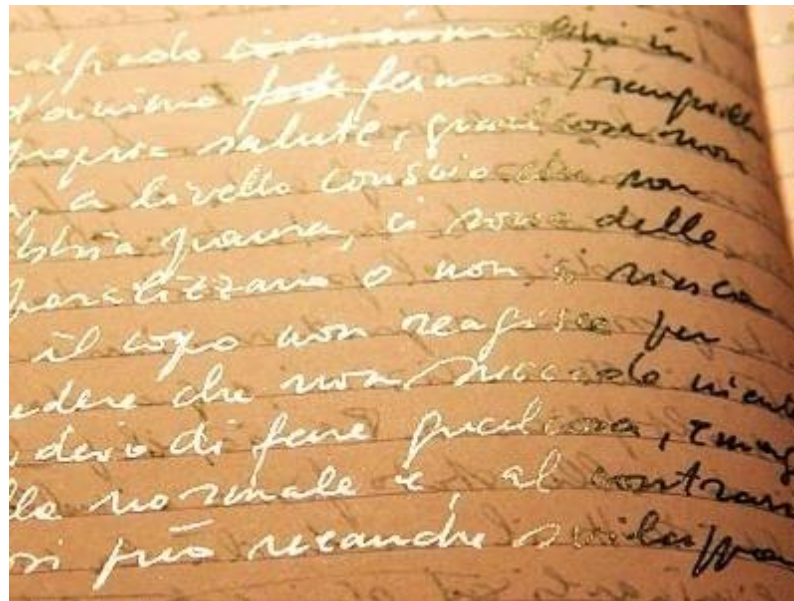 malgrado in
d'animo ferma tranquilla
propria salute, qualcosa non
a livello conscio che non
abbia paura, ci sono delle
paralizzano o non si riesca
il corpo non reagisce per
vedere che non succede niente
di fare qualcosa, emag
lla normale e, al contrari
si può neanche svilappa